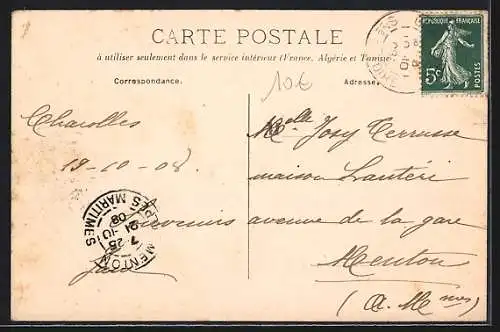 CARTE POSTALE
à utiliser seulement dans le service intérieur (France, Algérie et Tunisie
Correspondance.
Adresse
10€
RÉPUBLIQUE FRANÇAISE
5c
POSTES
Charolles
19-10-08
Souvenirs
MENTON
7 25
21-10
08
ALPES MARITIMES
Melle Josy Terrusse
maison Lautéri
avenue de la gare
Menton
(A. Mmes)